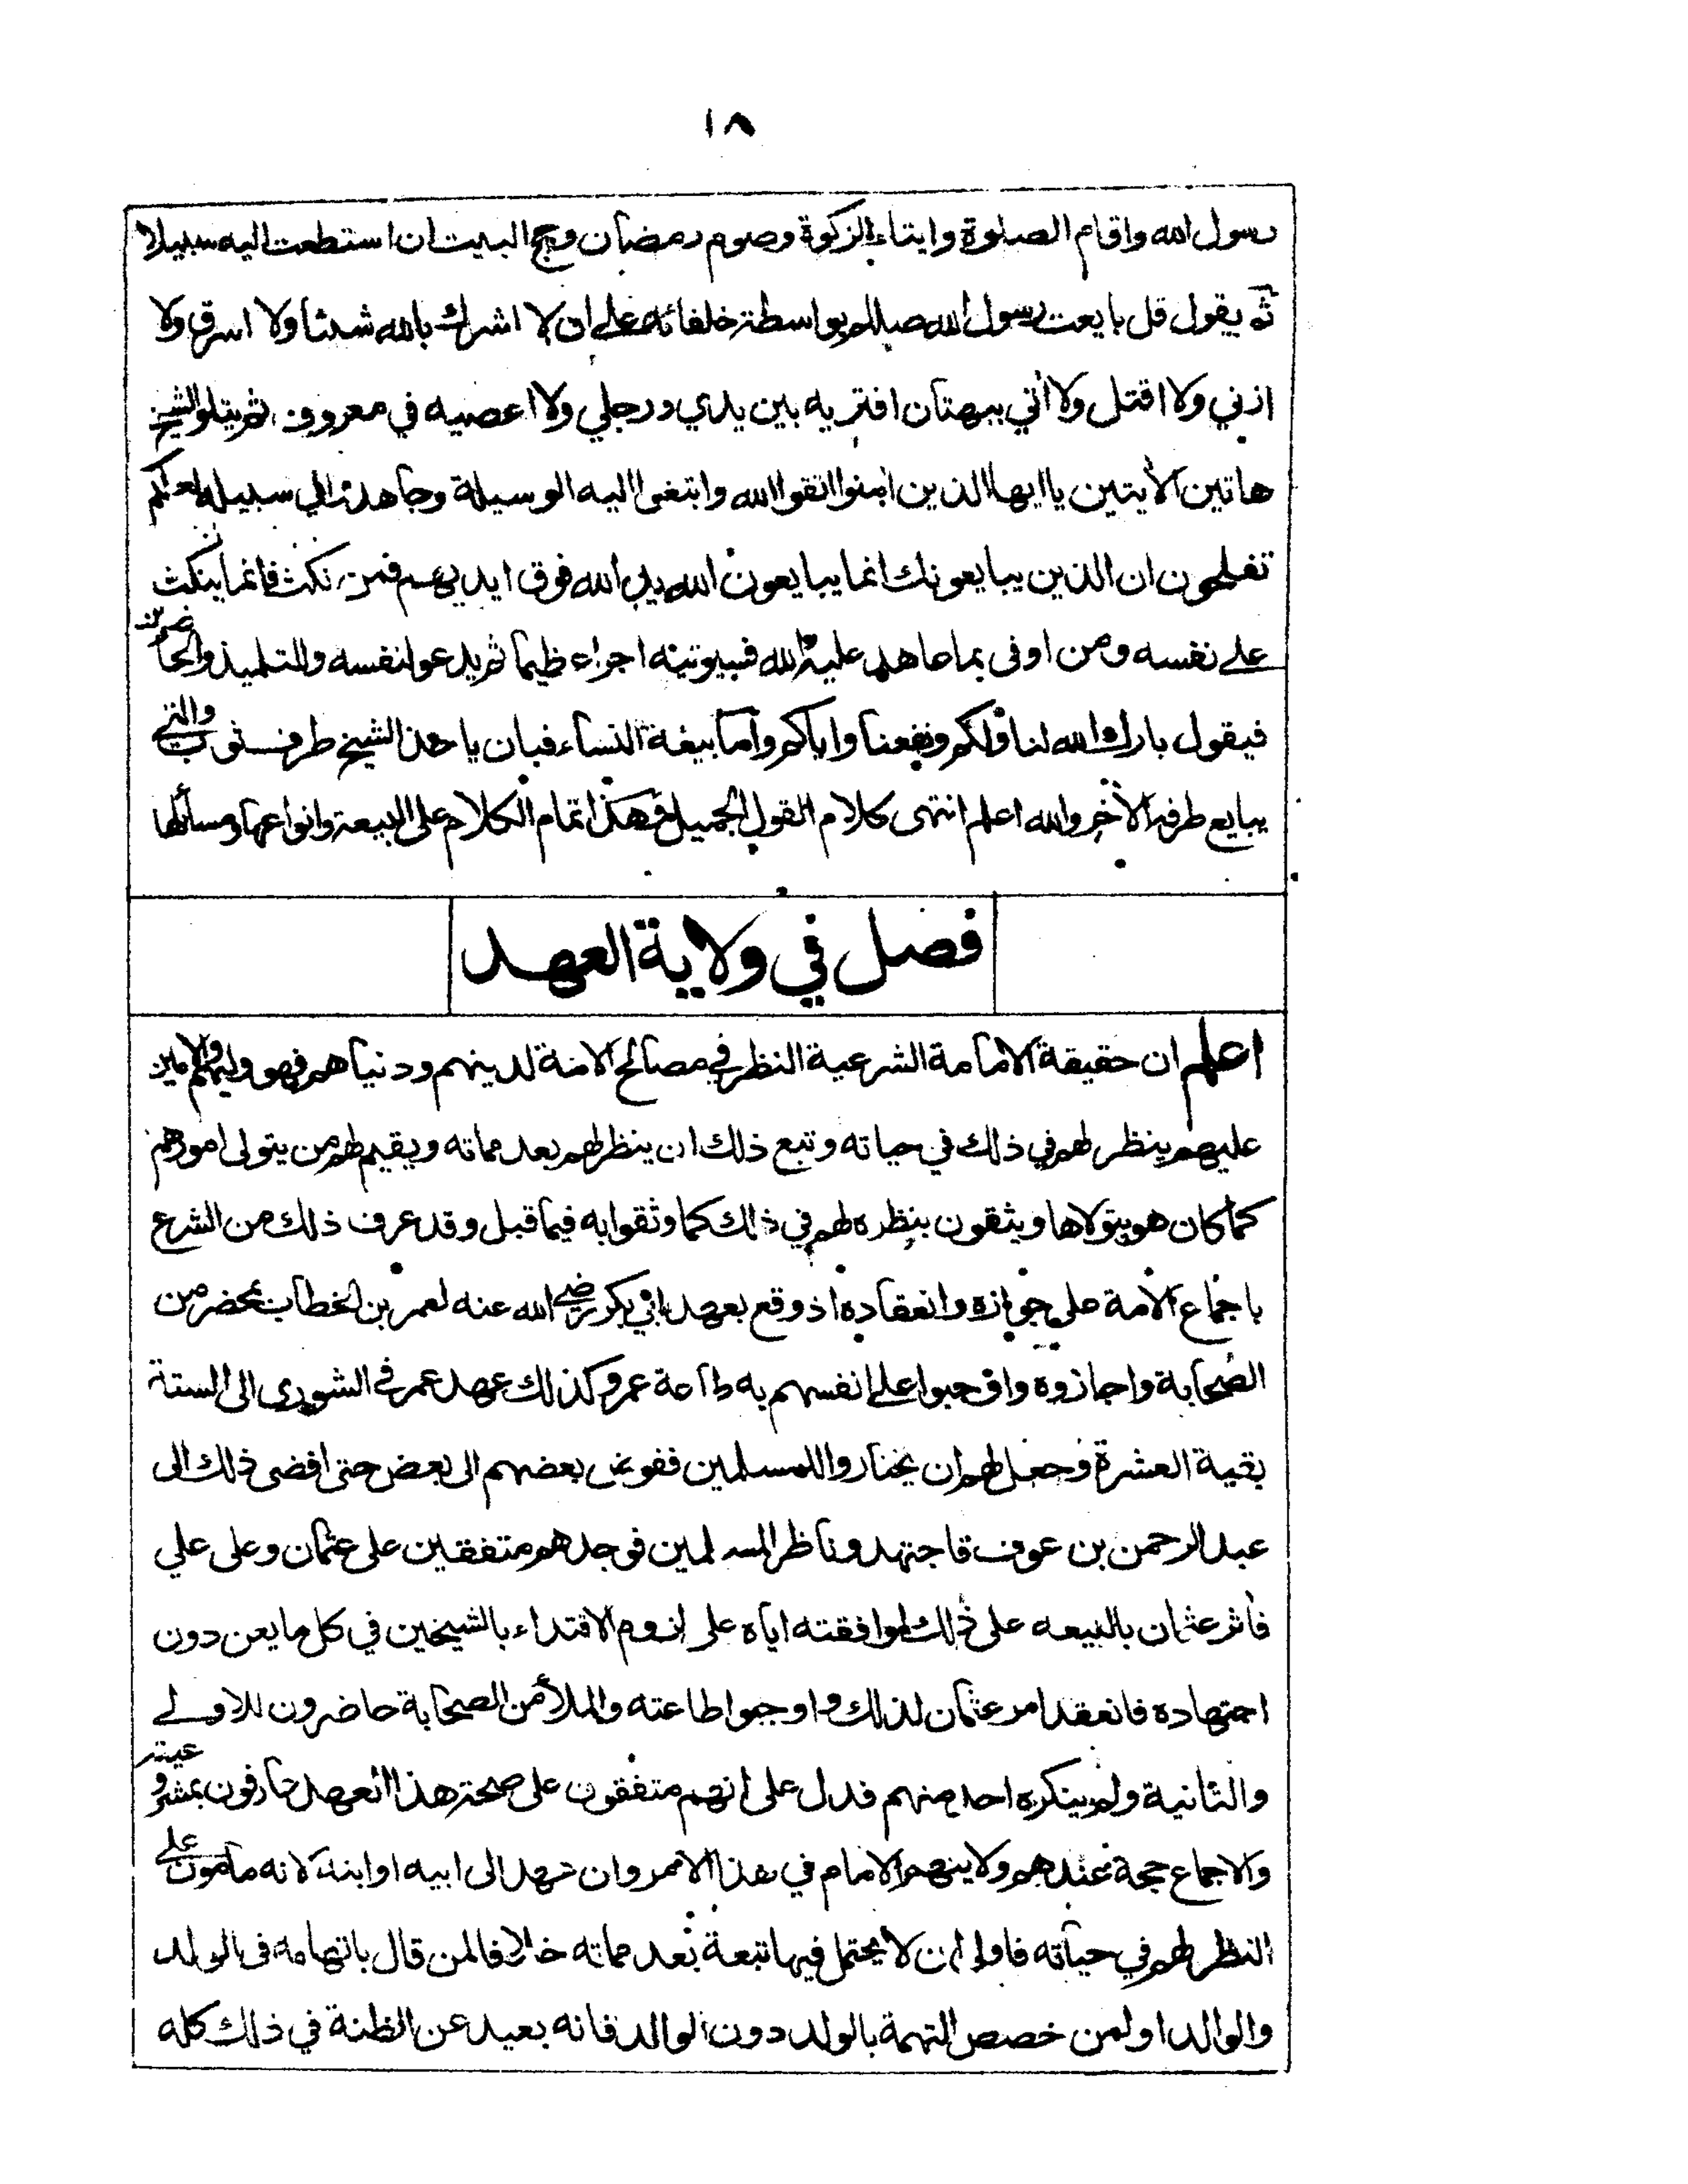 ١٨
رسول الله واقام الصلوة وايتاء الزكوة وصوم رمضان وحج البيت ان استطعت اليه سبيلا
ثم يقول قل بايعت رسول الله صللم بواسطة خلفائه على ان لا اشرك بالله شيئا ولا اسرق ولا
ازني ولا اقتل ولا أتي ببهتان افتريه بين يدي ورجلي ولا اعصيه في معروف ثم يتلو الشيخ
هاتين الأيتين يا ايها الذين امنوا اتقوا الله وابتغوا اليه الوسيلة وجاهدوا في سبيله لعلكم
تفلحون ان الذين يبايعونك انما يبايعون الله يد الله فوق ايديهم فمن نكث فانما ينكث
على نفسه ومن اوفى بما عاهد عليه الله فسيوتيه اجرا عظيما ثم يدعو لنفسه وللتلميذ والحاضرين
فيقول بارك الله لنا ولكم ونفعنا واياكم واما بيعة النساء فبان ياخذ الشيخ طرف ثوب والتي
يبايع طرفه الأخر والله اعلم انتهى كلام القول الجميل فهذا تمام الكلام على البيعة وانواعها ومسائلها
فصل في ولاية العهد
اعلم ان حقيقة الامامة الشرعية النظر في مصالح الامة لدينهم ودنياهم فهو وليهم والامين
عليهم ينظر لهم في ذلك في حياته وتبع ذلك ان ينظر لهم بعد مماته ويقيم لهم من يتولى امورهم
كما كان هو يتولاها ويثقون بنظره لهم في ذلك كما وثقوا به فيما قبل وقد عرف ذلك من الشرع
باجماع الأمة على جوازه وانعقاده اذ وقع بعهد ابي بكر رضي الله عنه لعمر بن الخطاب بمحضر من
الصحابة واجازوه واوجبوا على انفسهم به طاعة عمر وكذلك عهد عمر في الشورى الى الستة
بقية العشرة وجعل لهم ان يختاروا للمسلمين ففوض بعضهم الى بعض حتى افضى ذلك الى
عبد الرحمن بن عوف فاجتهد وناظر المسلمين فوجدهم متفقين على عثمان وعلى علي
فأثر عثمان بالبيعه على ذلك لموافقته اياه على لزوم الاقتداء بالشيخين في كل ما يعن دون
اجتهاده فانعقد امر عثمان لذلك واوجبوا طاعته والملأ من الصحابة حاضرون للاولى
والثانية ولم ينكره احد منهم فدل على انهم متفقون على صحة هذا العهد عارفون بمشروعيته
والاجماع حجة عندهم ولا يتهم الامام في هذا الامر وان عهد الى ابيه او ابنه لانه مأمون على
النظر لهم في حياته فاولى ان لا يحتمل فيها تبعة بعد مماته خلافا لمن قال باتهامه في الولد
والوالد او لمن خصص التهمة بالولد دون الوالد فانه بعيد عن الظنة في ذلك كله